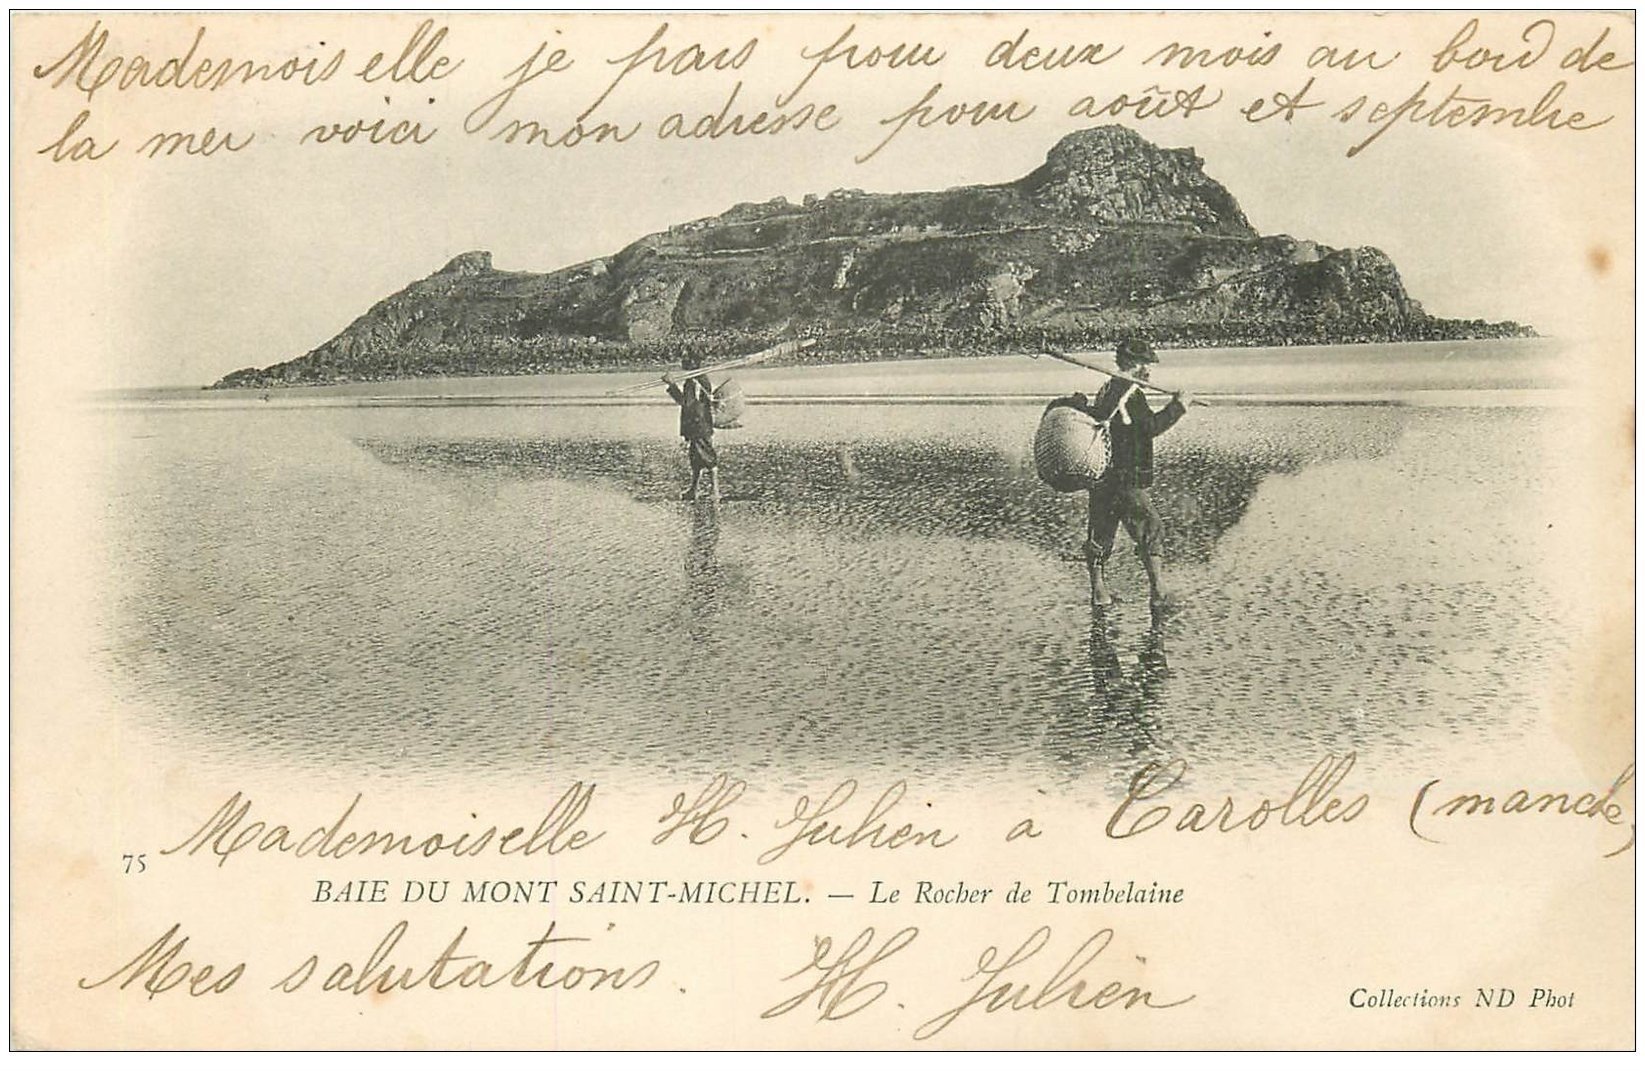 Mademoiselle je pars pour deux mois au bord de
la mer voici mon adresse pour août et septembre
Mademoiselle H. Julien à Carolles (manche)
75
BAIE DU MONT SAINT-MICHEL. — Le Rocher de Tombelaine
Mes salutations. H. Julien
Collections ND Phot